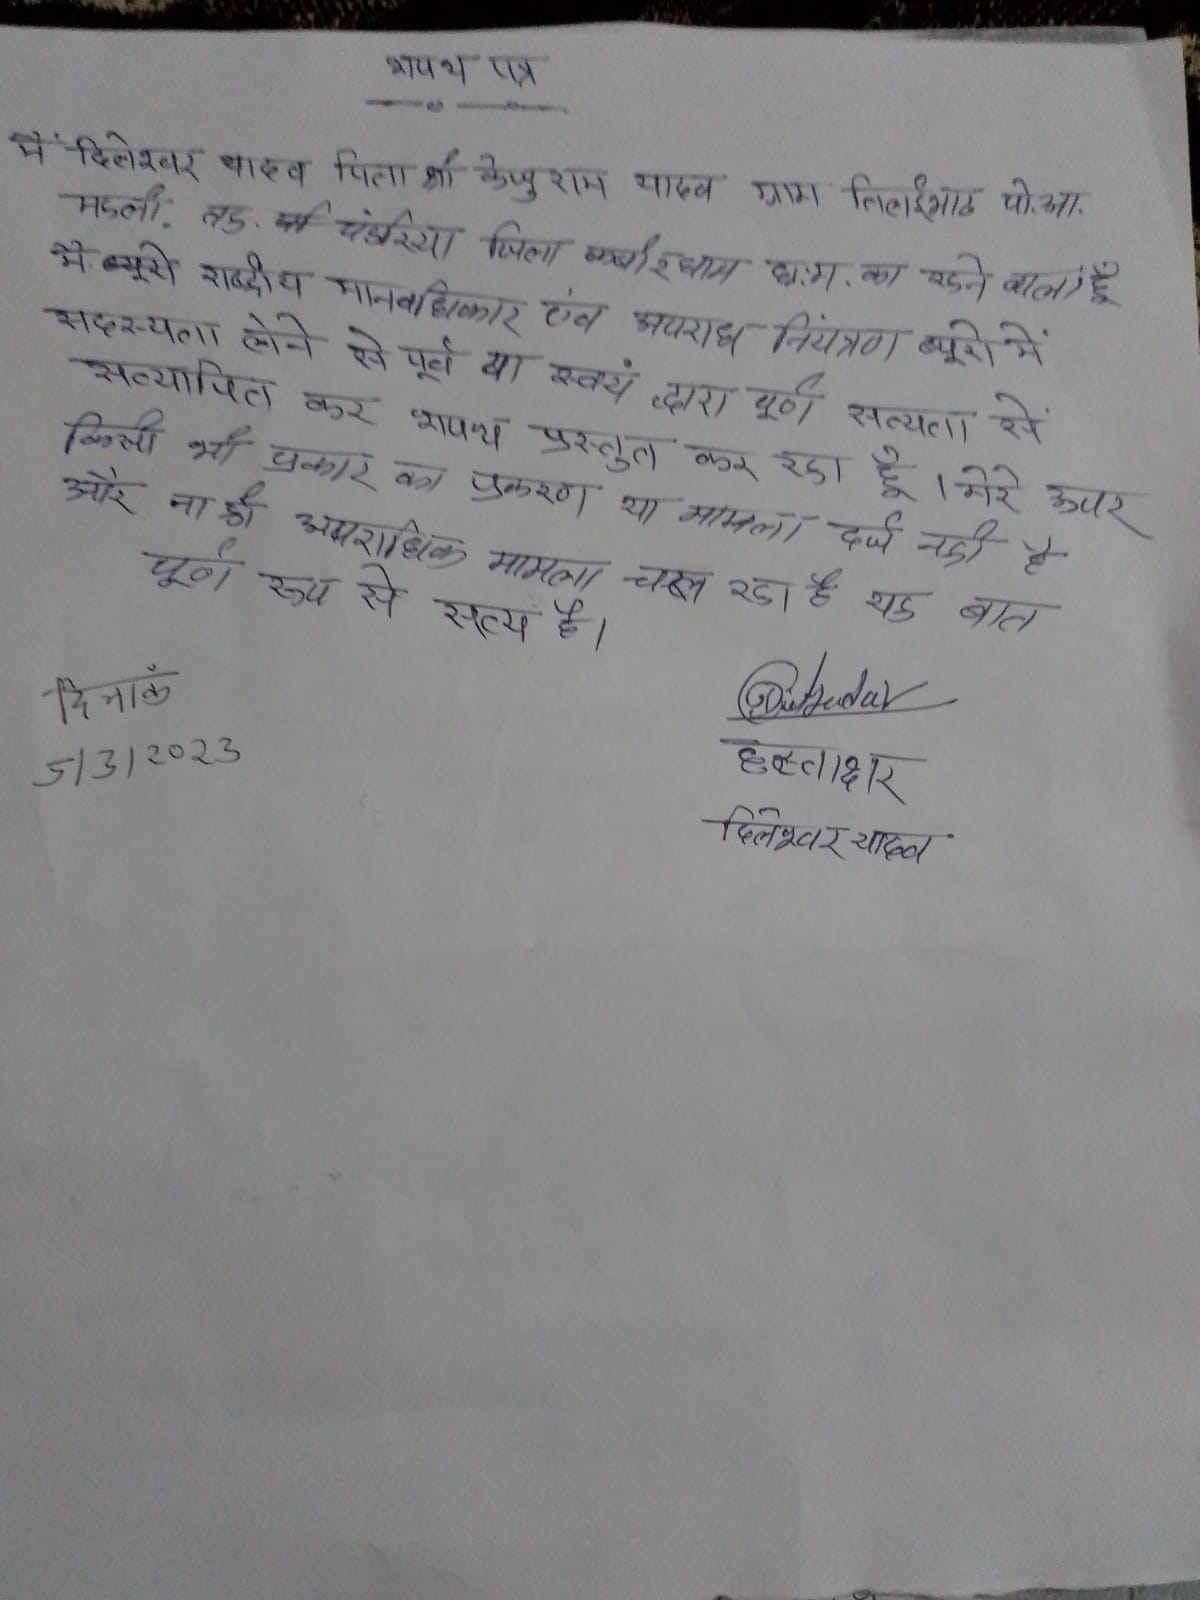 शपथ पत्र
मैं दिलेश्वर यादव पिता श्री केजुराम यादव ग्राम तिलईभाठ पो.आ.
महली. तह. पंडरिया जिला कबीरधाम छ.ग. का रहने वाला हूँ
मै ब्यूरो राष्ट्रीय मानवाधिकार एंव अपराध नियंत्रण ब्यूरो में
सदस्यता लेने से पूर्व या स्वयं द्वारा पूर्ण सत्यता से
सत्यापित कर शपथ प्रस्तुत कर रहा हूँ। मेरे ऊपर
किसी भी प्रकार का प्रकरण या मामला दर्ज नही है
और ना ही अपराधिक मामला चल रहा है यह बात
पूर्ण रूप से सत्य है।
दिनाकं
5/3/2023
हस्ताक्षर
दिलेश्वर यादव